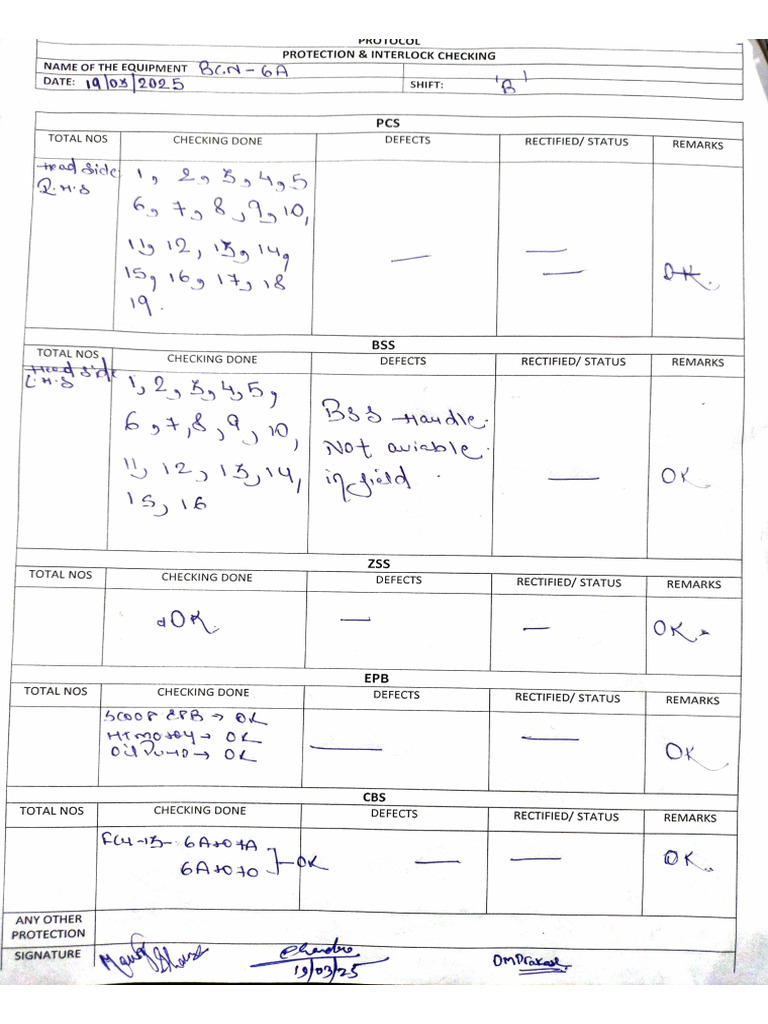 PROTOCOL
PROTECTION & INTERLOCK CHECKING
NAME OF THE EQUIPMENT BCN-6A
DATE: 19/03/2025 SHIFT: 'B'
PCS
TOTAL NOS CHECKING DONE DEFECTS RECTIFIED/ STATUS REMARKS
Head Side R.H.S
1, 2, 3, 4, 5
6, 7, 8, 9, 10,
11, 12, 13, 14,
15, 16, 17, 18
19.
— — — OK.
BSS
TOTAL NOS CHECKING DONE DEFECTS RECTIFIED/ STATUS REMARKS
Head Side L.H.S
1, 2, 3, 4, 5,
6, 7, 8, 9, 10,
11, 12, 13, 14,
15, 16
BSS Handle.
Not aviable.
in field.
— OK
ZSS
TOTAL NOS CHECKING DONE DEFECTS RECTIFIED/ STATUS REMARKS
OK. — — OK.
EPB
TOTAL NOS CHECKING DONE DEFECTS RECTIFIED/ STATUS REMARKS
SCOOP EPB → OK
HT MOTOR → OK
Oil Pump → OK
— — OK
CBS
TOTAL NOS CHECKING DONE DEFECTS RECTIFIED/ STATUS REMARKS
6A to 7A
6A to 7
OK — — OK.
ANY OTHER
PROTECTION
SIGNATURE Chandra OMPrakash
19/03/25